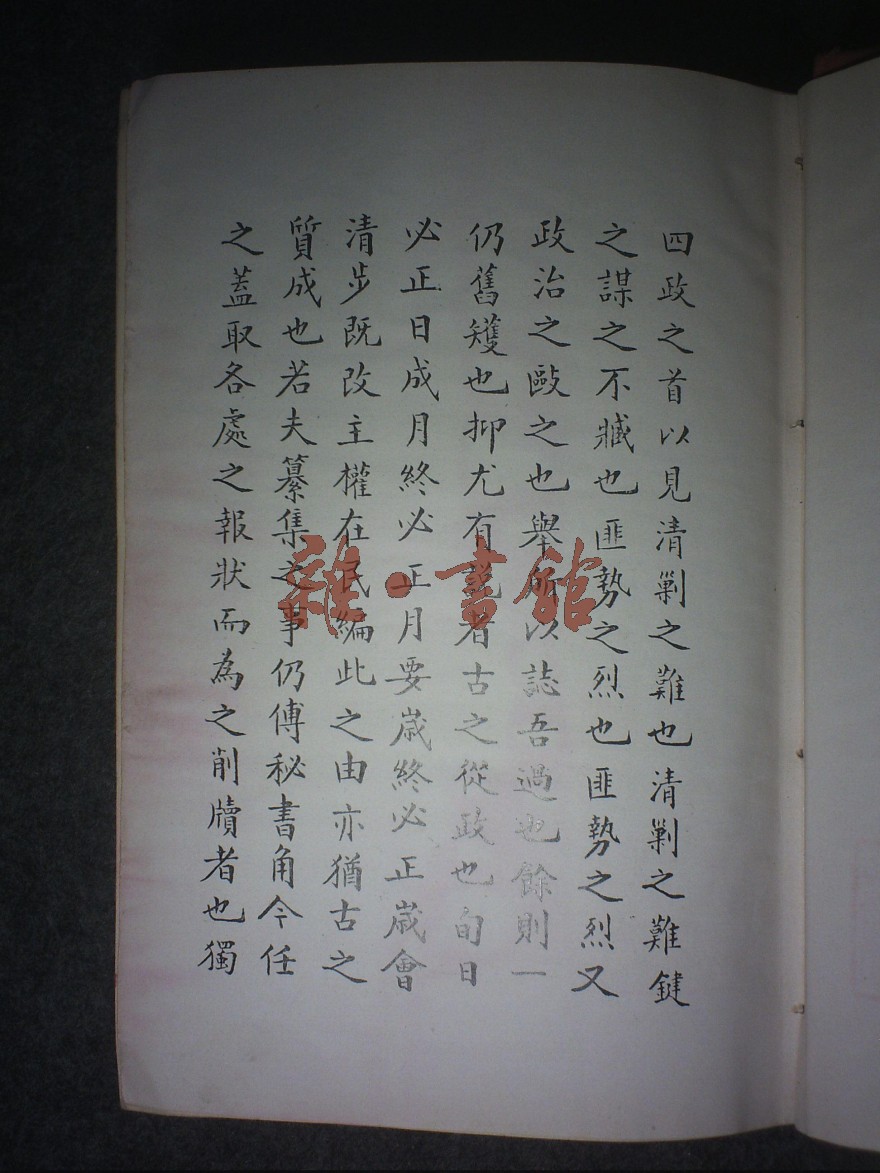 四政之首以見清剿之難也清剿之難鍵
之謀之不臧也匪勢之烈也匪勢之烈又
政治之毆之也舉所以誌吾過也餘則一
仍舊矱也抑尤有說者古之從政也旬日
必正日成月終必正月要歲終必正歲會
清步既改主權在民編此之由亦猶古之
質成也若夫纂集之事仍傅秘書角今任
之蓋取各處之報狀而為之削牘者也獨
雜·書館